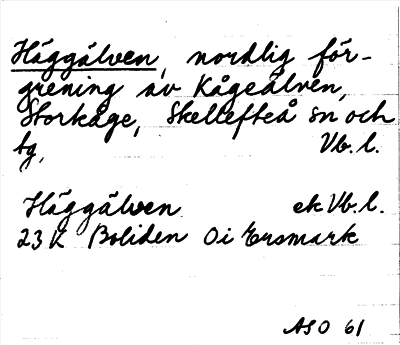 Häggälven, nordlig för-
grening av Kågeälven,
Storkåge, Skellefteå sn och
tg, Vb. l.
Häggälven ek Vb. l.
23 K Boliden 0 i Ersmark
ASO 61